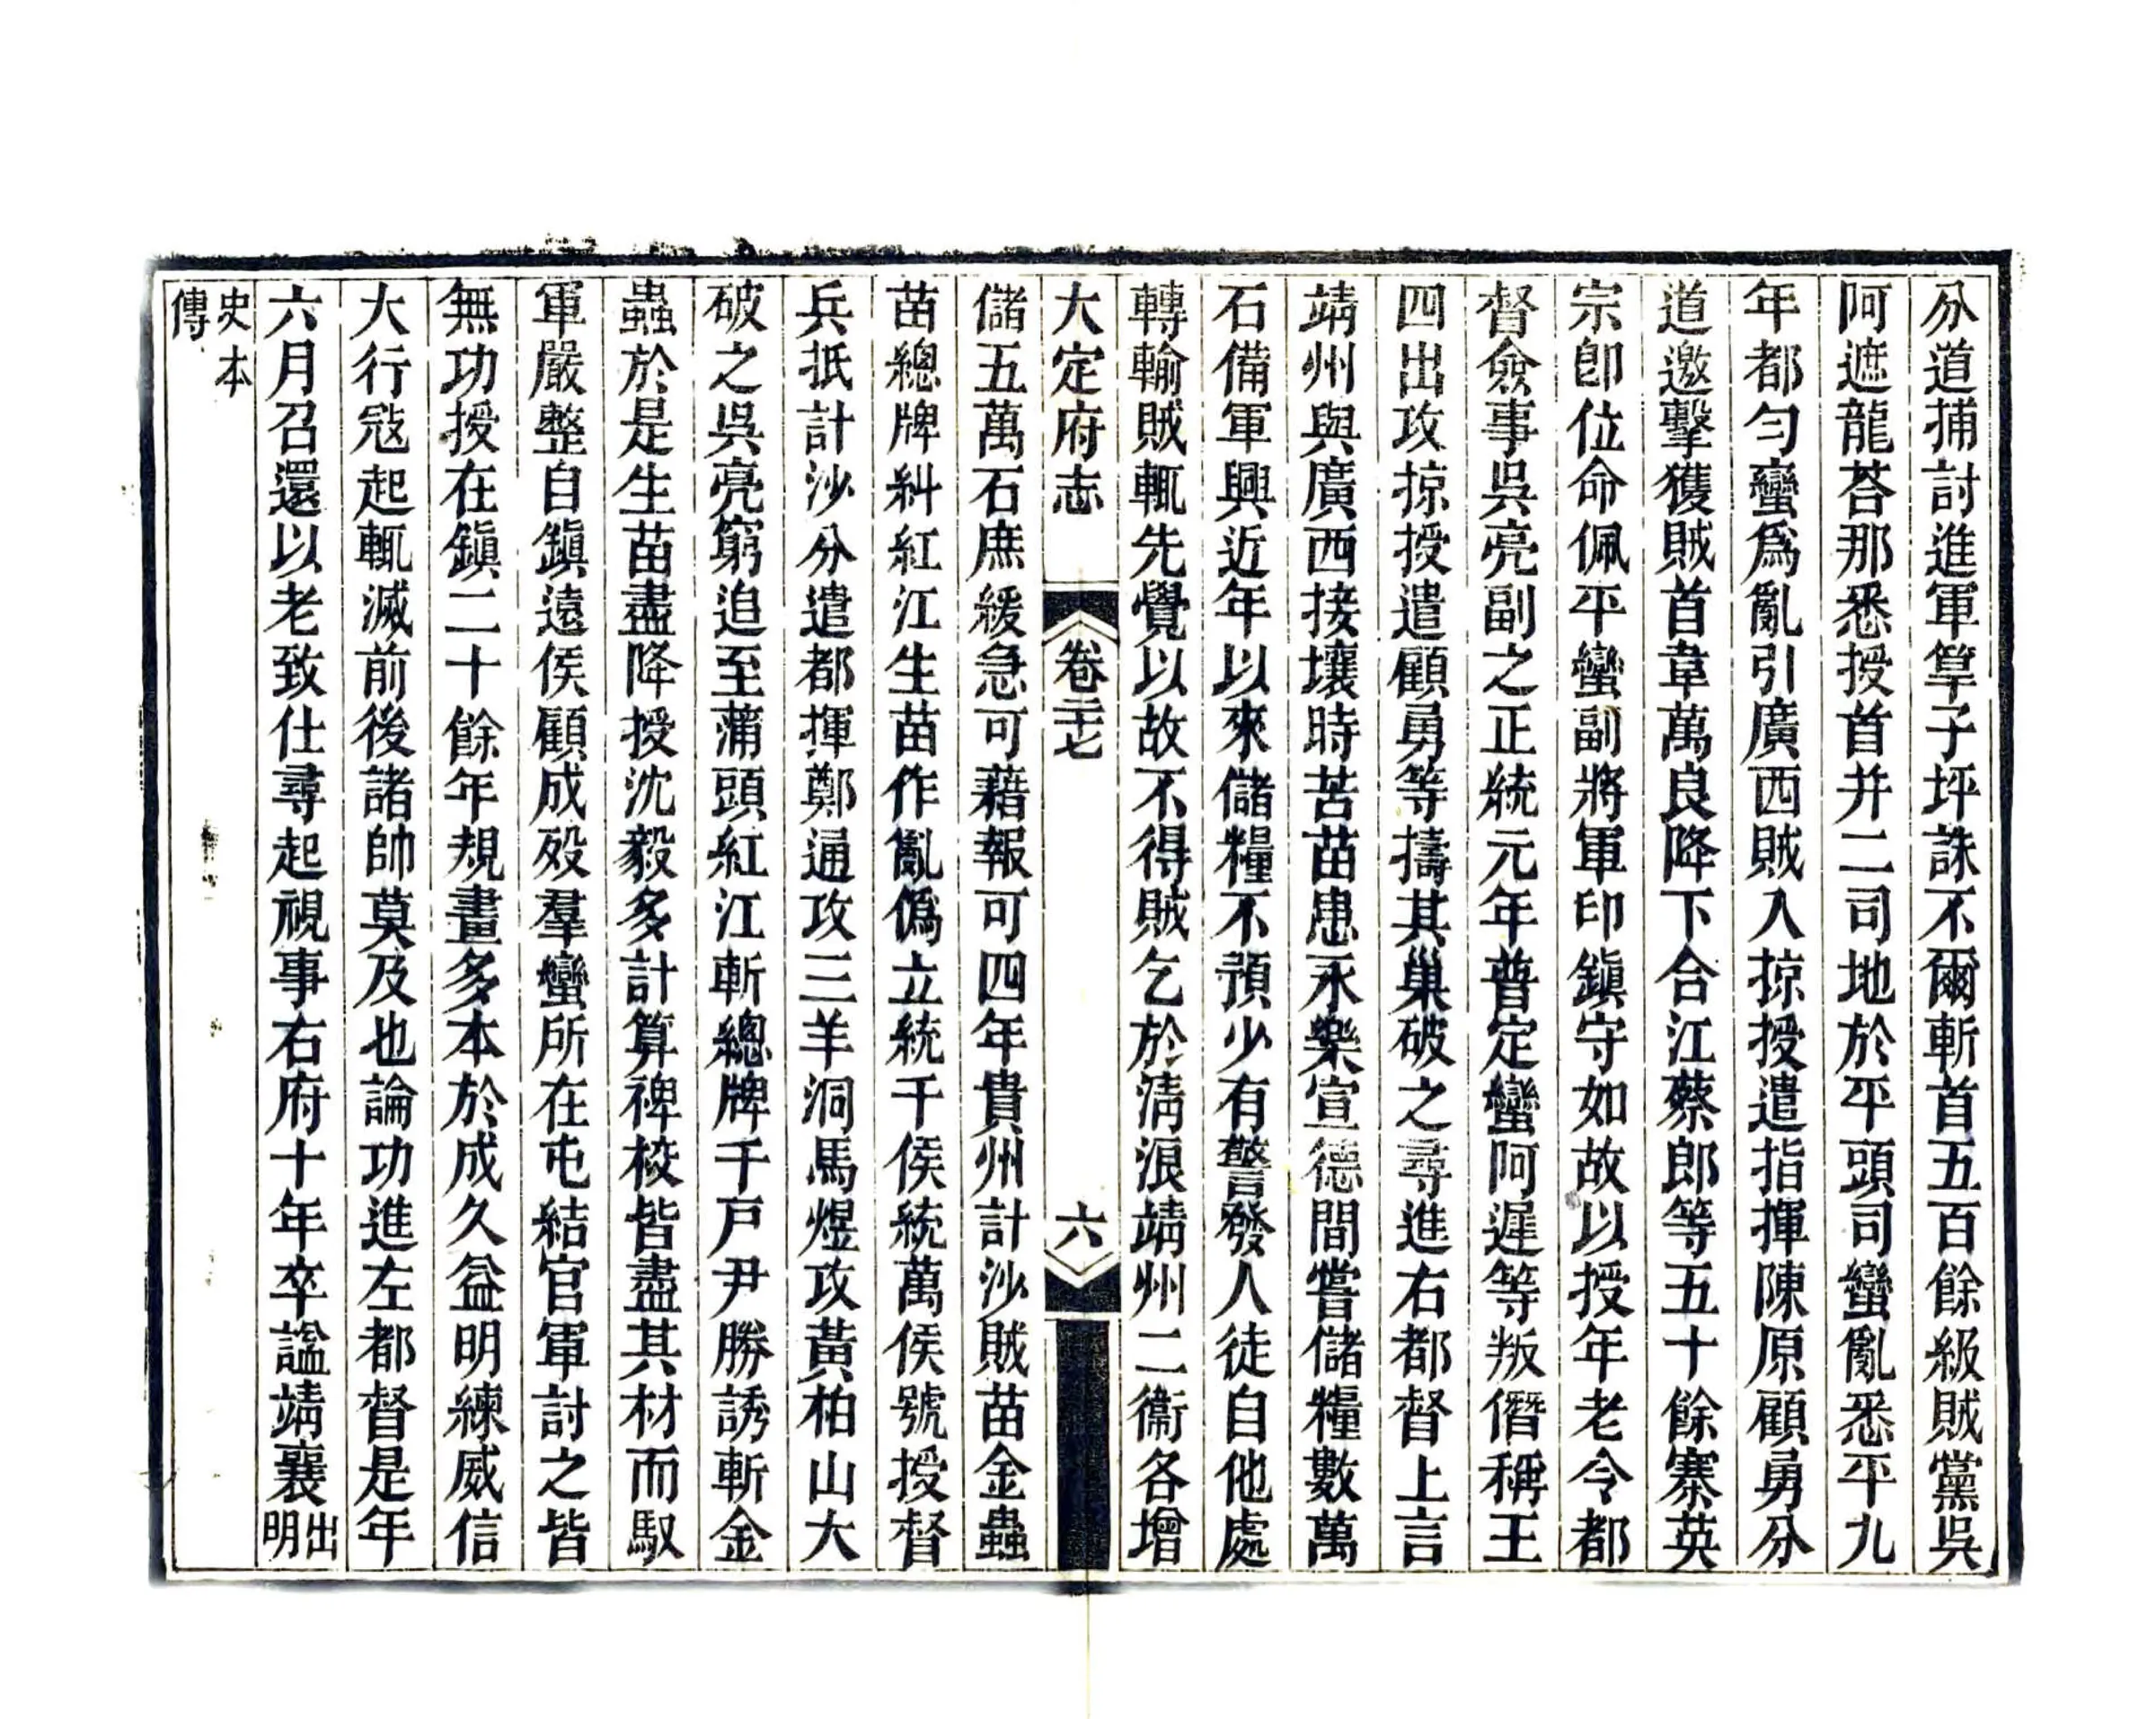 分道捕討進軍筸子坪誅不爾斬首五百餘級賊黨吳
阿遮龍荅那悉授首并二司地於平頭司蠻亂悉平九
年都勻蠻爲亂引廣西賊入掠授遣指揮陳原顧勇分
道邀擊獲賊首韋萬良降下合江蔡郎等五十餘寨英
宗卽位命佩平蠻副將軍印鎮守如故以授年老令都
督僉事吳亮副之正統元年普定蠻阿遲等叛僭稱王
四出攻掠授遣顧勇等擣其巢破之尋進右都督上言
靖州與廣西接壤時苦苗患永樂宣德間嘗儲糧數萬
石備軍興近年以來儲糧不預少有警發人徒自他處
轉輸賊輒先覺以故不得賊乞於淸浪靖州二衞各增
大定府志 卷二七 六
儲五萬石庶緩急可藉報可四年貴州計沙賊苗金蟲
苗總牌糾紅江生苗作亂僞立統千侯統萬侯號授督
兵抵計沙分遣都揮鄭通攻三羊洞馬煜攻黃柏山大
破之吳亮窮追至蒲頭紅江斬總牌千戸尹勝誘斬金
蟲於是生苗盡降授沈毅多計算裨校皆盡其材而馭
軍嚴整自鎮遠侯顧成歿羣蠻所在屯結官軍討之皆
無功授在鎮二十餘年規畫多本於成久益明練威信
大行寇起輒滅前後諸帥莫及也論功進左都督是年
六月召還以老致仕尋起視事右府十年卒謚靖襄出明
史本傳